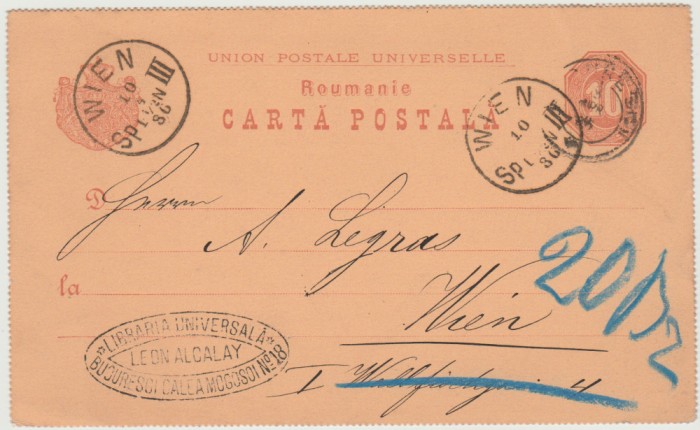 UNION POSTALE UNIVERSELLE
Roumanie
CARTĂ POSTALĂ
10
WIEN III
10
86
WIEN III
10
86
D Herrn
A. Legras
la
Wien
I
4
LIBRARIA UNIVERSALĂ
LEON ALCALAY
BUCURESCI CALEA MOGOSOI No. 18